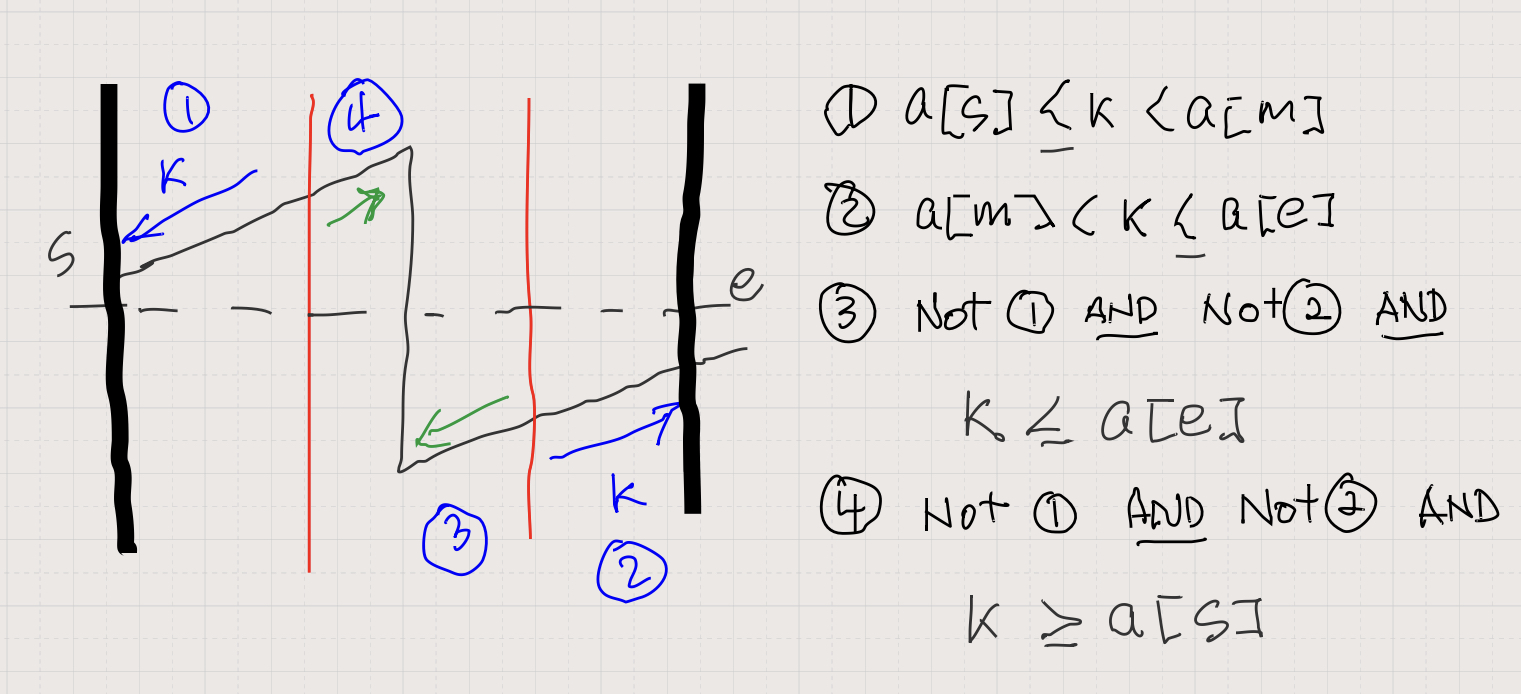 ① ④
K
S
e
③ K
②
① a[s] ≤ k < a[m]
② a[m] < k ≤ a[e]
③ Not ① AND Not ② AND
k ≤ a[e]
④ Not ① AND Not ② AND
k ≥ a[s]